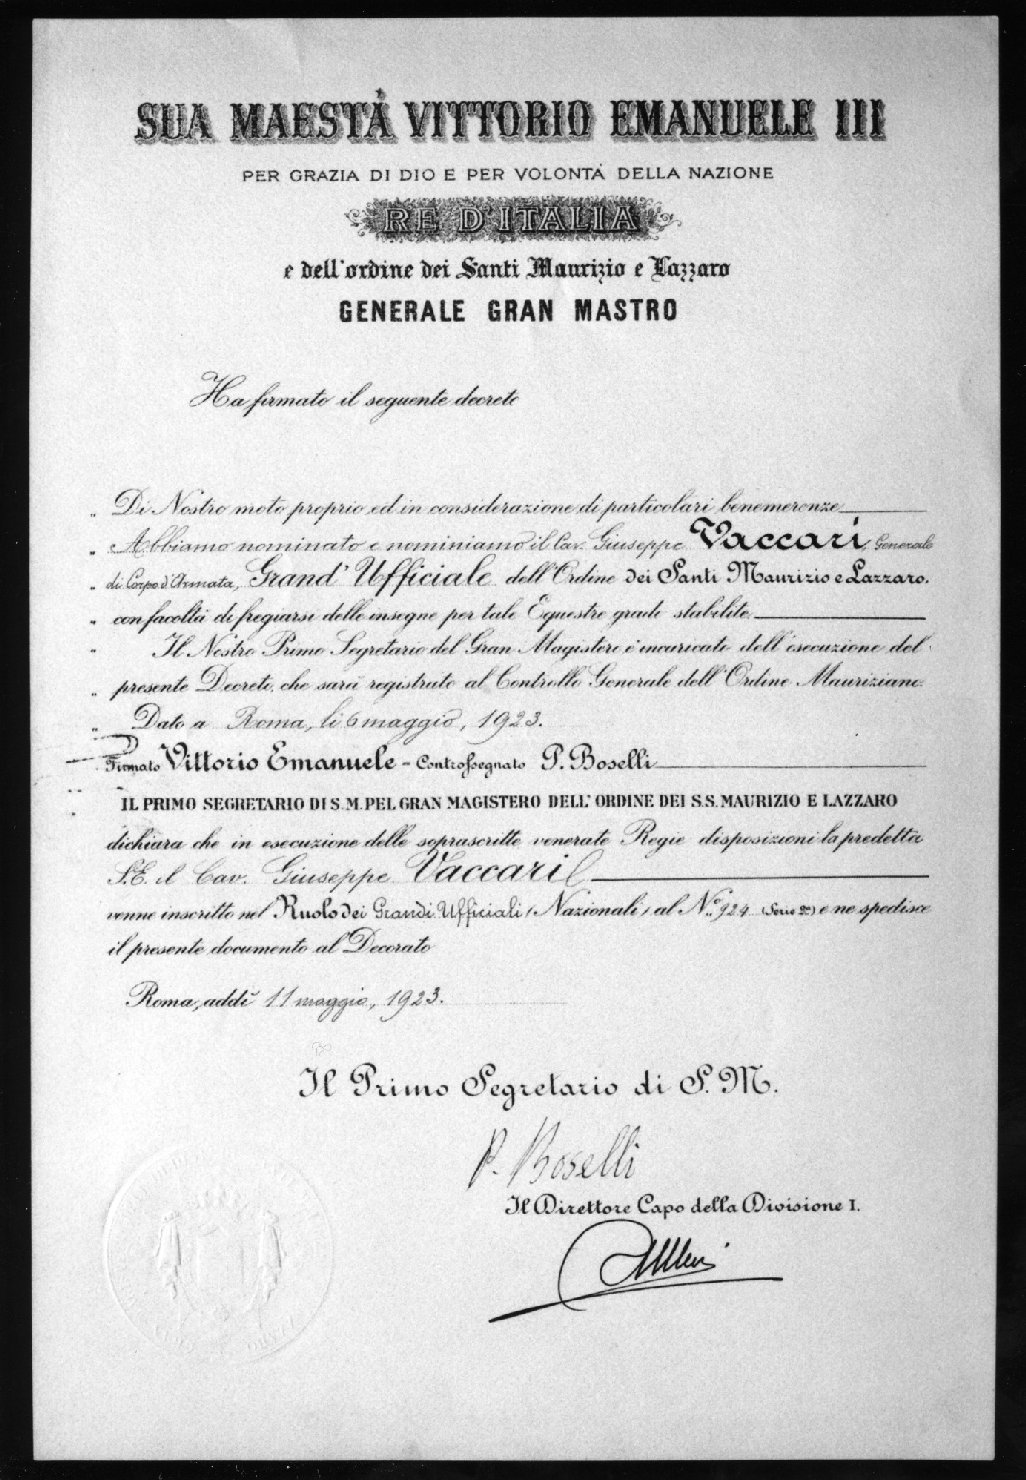 SUA MAESTÀ VITTORIO EMANUELE III
PER GRAZIA DI DIO E PER VOLONTÀ DELLA NAZIONE
RE D'ITALIA
e dell'ordine dei Santi Maurizio e Lazzaro
GENERALE GRAN MASTRO
Ha firmato il seguente decreto
„ Di Nostro moto proprio ed in considerazione di particolari benemerenze
„ Abbiamo nominato e nominiamo il Cav. Giuseppe Vaccari, Generale
„ di Corpo d'Armata, Grand' Ufficiale dell'Ordine dei Santi Maurizio e Lazzaro.
„ con facoltà di fregiarsi delle insegne per tale Equestre grado stabilite
„ Il Nostro Primo Segretario del Gran Magistero è incaricato dell'esecuzione del
„ presente Decreto, che sarà registrato al Controllo Generale dell'Ordine Mauriziano.
„ Dato a Roma, li 6 maggio, 1923.
Firmato Vittorio Emanuele - Controssegnato P. Boselli
IL PRIMO SEGRETARIO DI S. M. PEL GRAN MAGISTERO DELL' ORDINE DEI S.S. MAURIZIO E LAZZARO
dichiara che in esecuzione delle soprascritte venerate Regie disposizioni la predetta
S.E. il Cav. Giuseppe Vaccari
venne inscritto nel Ruolo dei Grandi Ufficiali (Nazionali) al N.º 924 (Serie 2ª) e ne spedisce
il presente documento al Decorato
Roma, addì 11 maggio, 1923.
Il Primo Segretario di S. M.
P. Boselli
Il Direttore Capo della Divisione I.